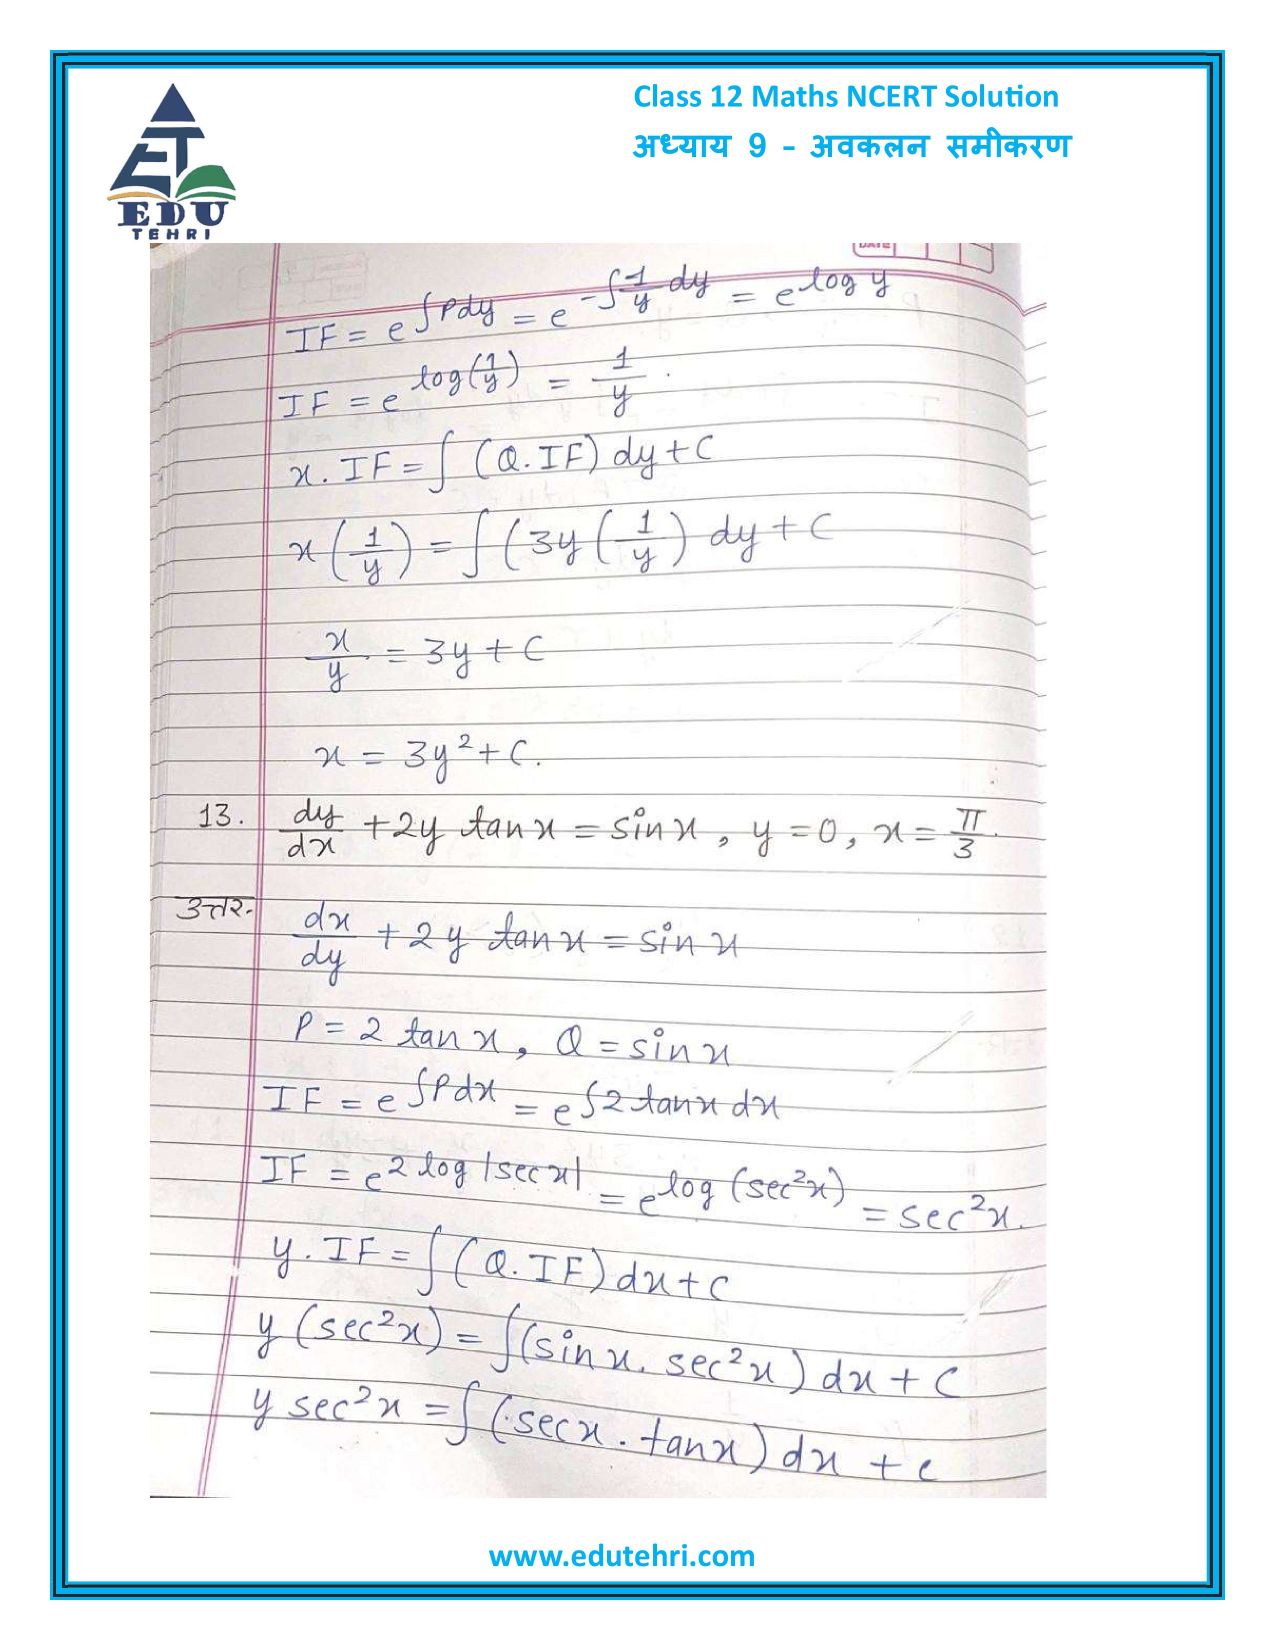 Class 12 Maths NCERT Solution
अध्याय 9 - अवकलन समीकरण
EDU
TEHRI
DATE
IF = e^∫Pdy = e^-∫1/y dy = e^log y
IF = e^log(1/y) = 1/y.
x. IF = ∫ (Q. IF) dy + C
x(1/y) = ∫ (3y (1/y) dy + C
x/y = 3y + C
x = 3y² + C.
13. dy/dx + 2y tan x = sin x, y = 0, x = π/3.
उत्तर. dx/dy + 2y tan x = sin x
P = 2 tan x, Q = sin x
IF = e^∫Pdx = e^∫2 tan x dx
IF = e^2 log|sec x| = e^log (sec²x) = sec²x.
y. IF = ∫ (Q. IF) dx + C
y (sec²x) = ∫(sin x. sec²x) dx + C
y sec²x = ∫ (sec x. tan x) dx + c
www.edutehri.com